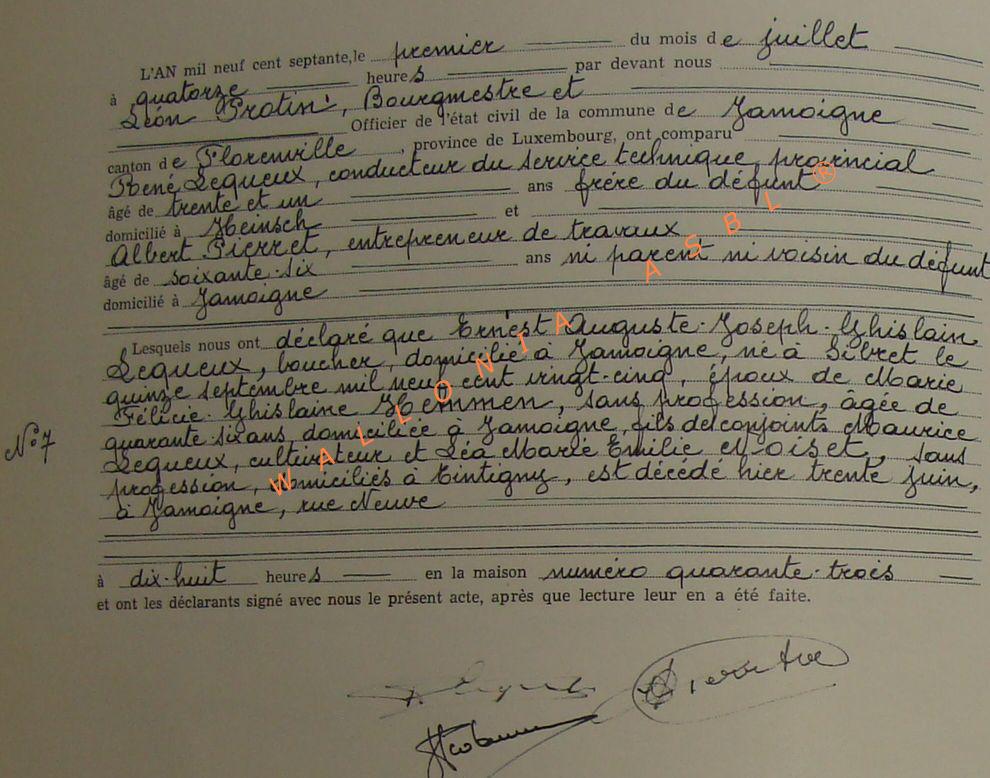 L'AN mil neuf cent septante, le premier du mois de juillet
à quatorze heures par devant nous
Léon Protin, Bourgmestre et
Officier de l'état civil de la commune de Jamoigne
canton de Florenville, province de Luxembourg, ont comparu
René Lequeux, conducteur du service technique provincial
âgé de trente et un ans frère du défunt
domicilié à Heinsch et
Albert Pierret, entrepreneur de travaux
âgé de soixante-six ans ni parent ni voisin du défunt
domicilié à Jamoigne
Lesquels nous ont déclaré que Ernest-Auguste-Joseph-Ghislain
Lequeux, boucher, domicilié à Jamoigne, né à Sibret le
quinze septembre mil neuf cent vingt-cinq, époux de Marie
Félicie-Ghislaine Hemmen, sans profession, âgée de
quarante six ans, domiciliée à Jamoigne, fils des conjoints Maurice
N°7
Lequeux, cultivateur et Léa Marie Emilie Moiset, sans
profession, domiciliés à Tintigny, est décédé hier trente juin,
à Jamoigne, rue Neuve
à dix-huit heures en la maison numéro quarante-trois
et ont les déclarants signé avec nous le présent acte, après que lecture leur en a été faite.
WALLONIA ASBL ®